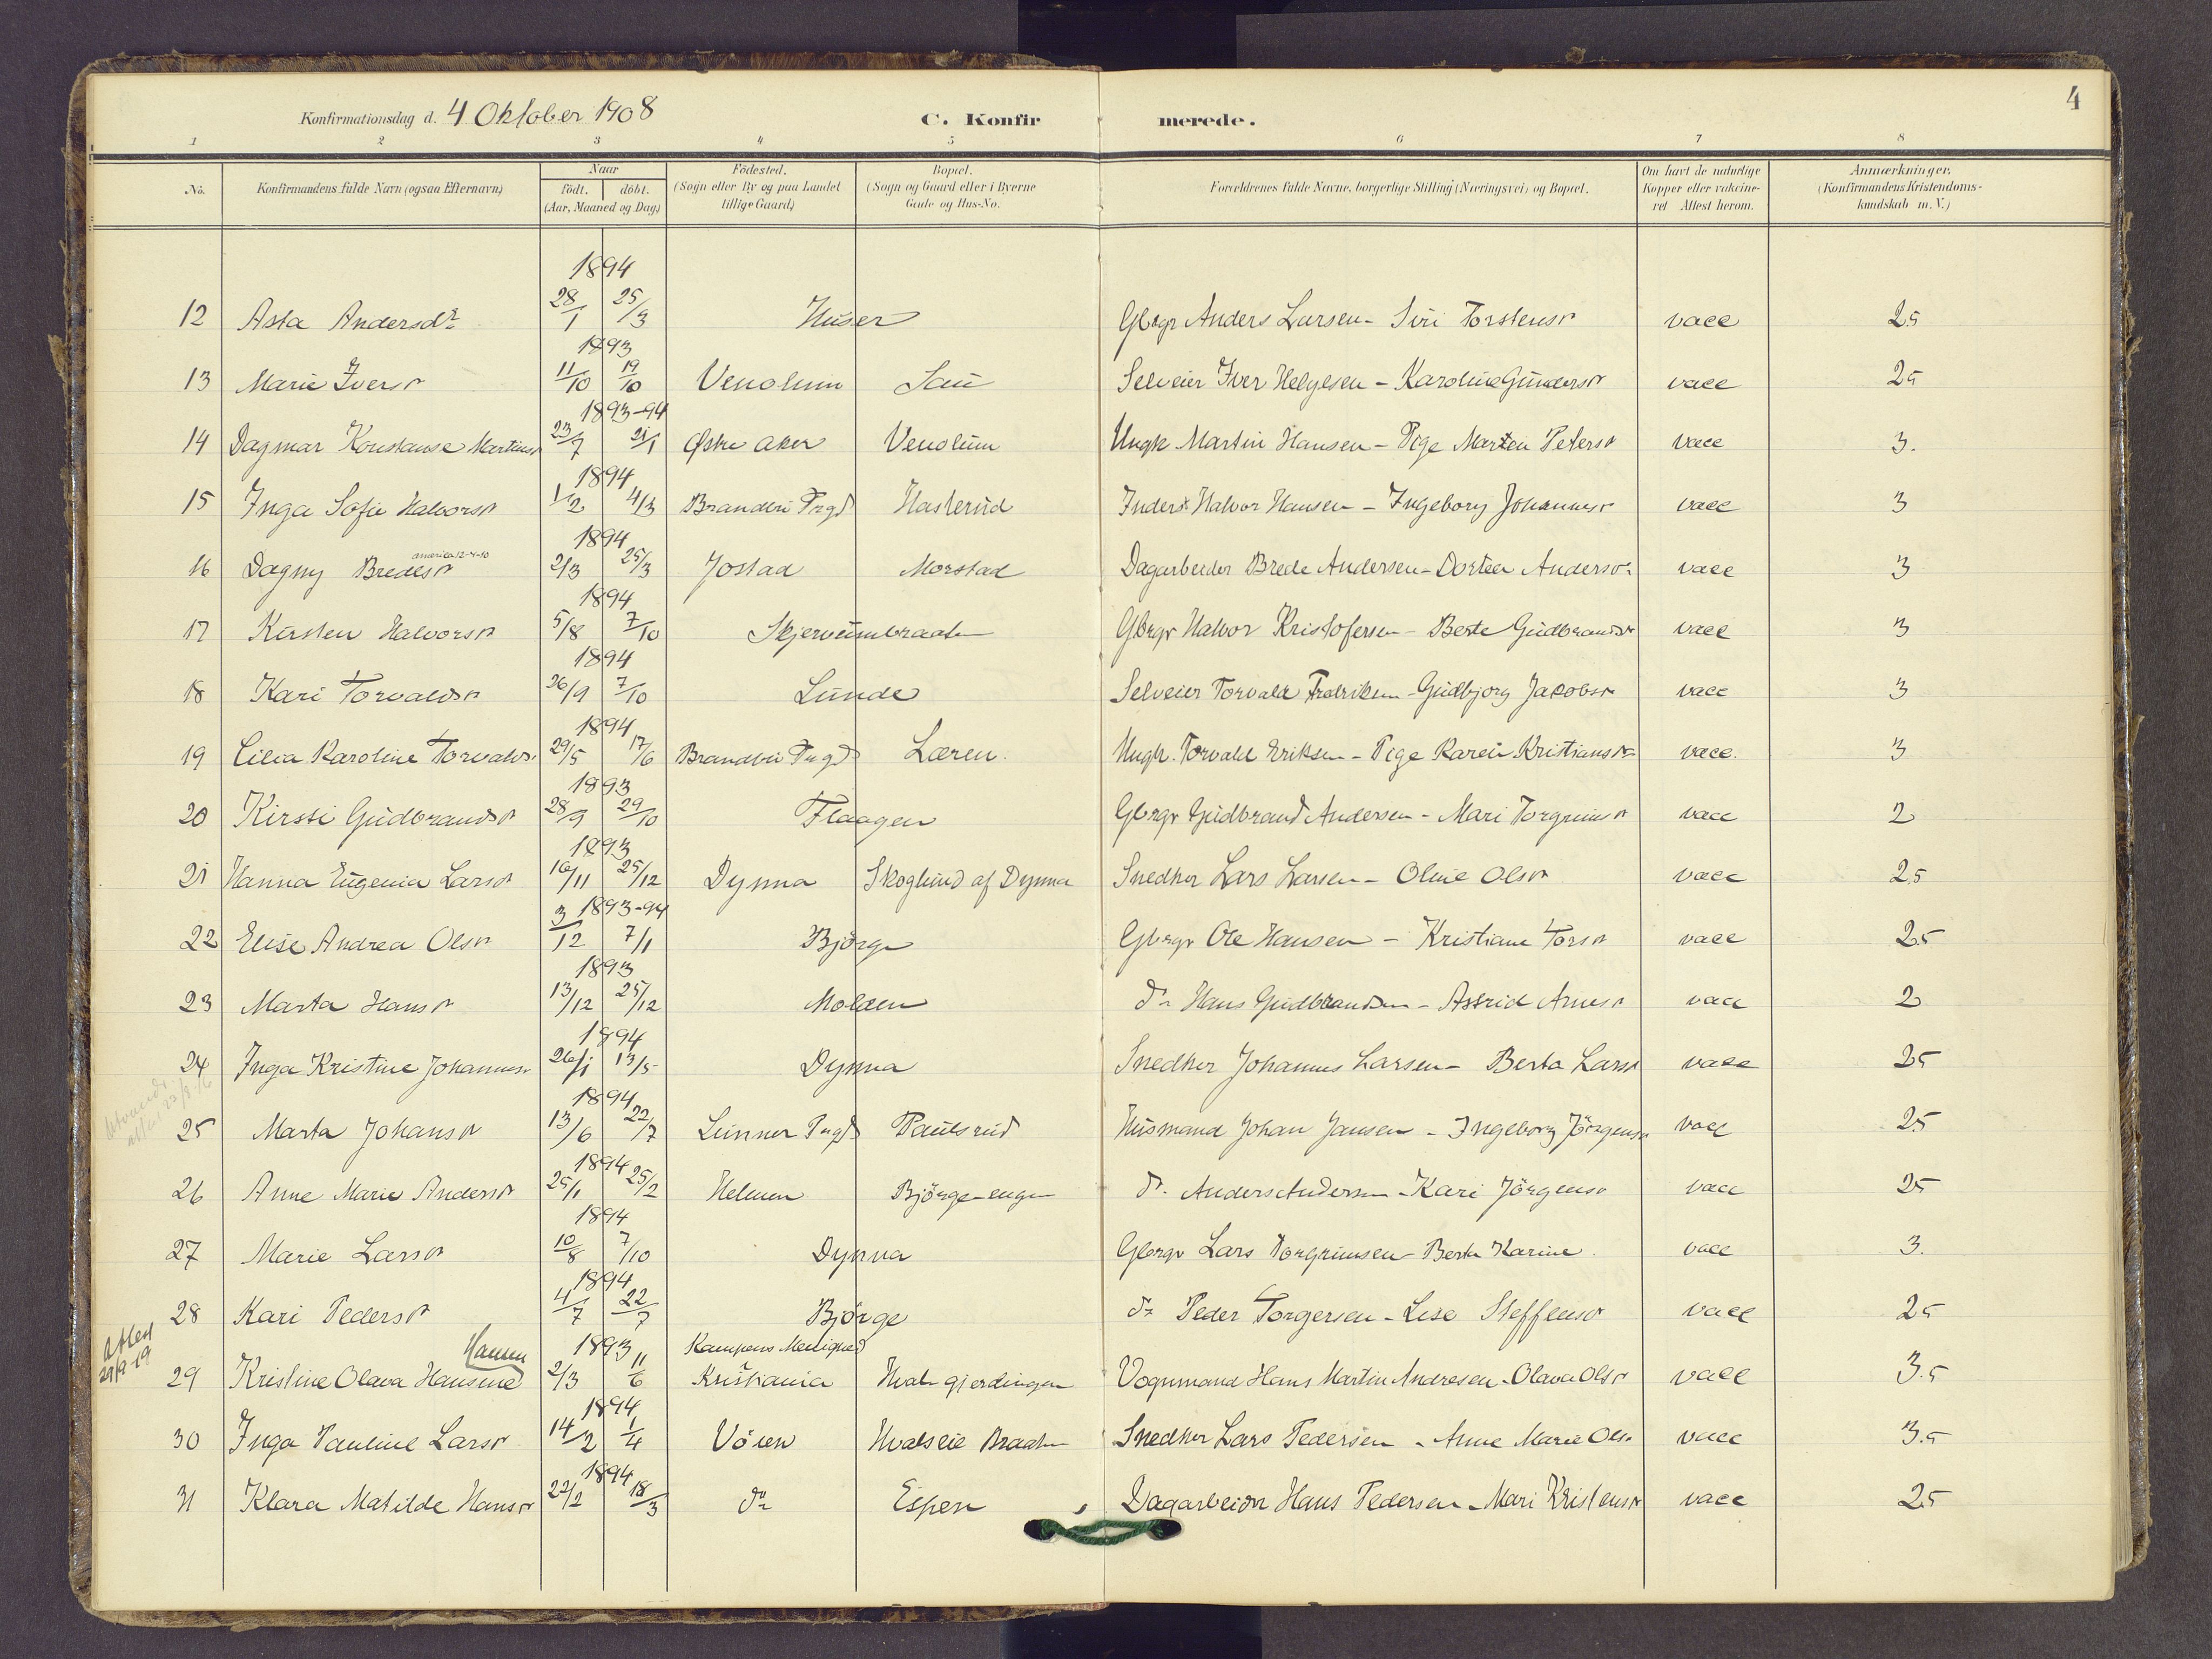 4
Konfirmationsdag d. 4 Oktober 1908 C. Konfir merede.
1 2 3 4 5 6 7 8
No. Konfirmandens fulde Navn (ogsaa Efternavn) Naar födt. döbt. (Aar, Maaned og Dag) Födested. (Sogn eller By og paa Landet tillige Gaard) Bopæl. (Sogn og Gaard eller i Byerne Gade og Hus-No. Forældrenes fulde Navne, borgerlige Stilling (Næringsvei) og Bopæl. Om havt de naturlige Kopper eller vakcineret Attest herom. Anmærkninger. (Konfirmandens Kristendomskundskab m. V.)
1894
12 Asta Andersdr 28/1 25/3 Huser Gbrgr Anders Larsen - Siri Torstensdr vacc 2.5
1893
13 Marie Iversdr 11/10 19/10 Venolum Sau Selveier Iver Helgesen - Karoline Gundersdr vacc 2.5
1893-94
14 Dagmar Konstanse Martinsdr 23/7 21/1 Østre Aker Venolum Ungk. Martin Hansen - Pige Marten Petersdr vacc 3.
1894
15 Inga Sofie Halvorsdr 1/2 4/3 Brandbu Prgd Hasterud Inderst Halvor Hansen - Ingeborg Johannesdr vacc 3
america 12-4-10
1894
16 Dagny Bredesdr 2/3 25/3 Jostad Morstad Dagarbeider Brede Andersen - Dortea Andersdr vacc 3
1894
17 Kirsten Halvorsdr 5/8 7/10 Skjervumbraaten Gbrgr Halvor Kristofersen - Berte Gudbrandsdr vacc 3
1894
18 Kari Torvaldsdr 26/9 7/10 Lunde Selveier Torvald Fredriksen - Gudbjorg Jakobsdr vacc 3
1894
19 Lilia Karoline Torvaldsdr 29/5 17/6 Brandbu Prgd Læren. Ungk. Torvald Eriksen - Pige Karen Kristiansdr vacc. 3
1893
20 Kirsti Gudbrandsdr 28/9 29/10 Flaagen Gbrgr Gudbrand Andersen - Mari Torgrimsdr vacc 2
1893
21 Hanna Eugenia Larsdr 16/11 25/12 Dynna Skoglund af Dynna Snedker Lars Larsen - Oline Olsdr vacc 2.5
1893-94
22 Elise Andrea Olsdr 3/12 7/1 Bjørge Gbrgr Ole Hansen - Kristiane Torsdr vacc 2.5
1893
23 Marta Hansdr 13/12 25/12 Molden do Hans Gudbrandsen - Astrid Arnesdr vacc 2
1894
24 Inga Kristine Johannesdr 26/1 13/5 Dynna Snedker Johannes Larsen - Berta Larsdr vacc 2.5
1894
25 Marta Johansdr 13/6 22/7 Lunner Prgd Paulsrud Husmand Johan Jansen - Ingeborg Jörgensdr vacc 2.5
1894
26 Anne Marie Andersdr 25/1 25/2 Helmen Bjørge-engen do. Anders Andersen - Kari Jörgensdr vacc 2.5
1894
27 Marie Larsdr 10/8 7/10 Dynna Gbrgr Lars Torgrimsen - Berte Karine. vacc 3.
1894
28 Kari Pedersdr 4/7 22/7 Bjørge do Peder Torgersen - Lise Steffensdr vacc 2.5
Attest 29/9-19
Hansen 1893 Kampens Menighed
29 Kristine Olava Hansine 2/3 11/6 Kristiania Hvalsgjerdingen Vognmand Hans Martin Andresen - Olava Olsdr vacc 3.5
1894
30 Inga Pauline Larsdr 14/2 1/4 Vöien Hvalseie Braaten Snedker Lars Pedersen - Anne Marie Olsdr vacc 3.5
1894
31 Klara Matilde Hansdr 22/2 18/3 do Espen Dagarbeider Hans Pedersen - Mari Kristensdr vacc 2.5